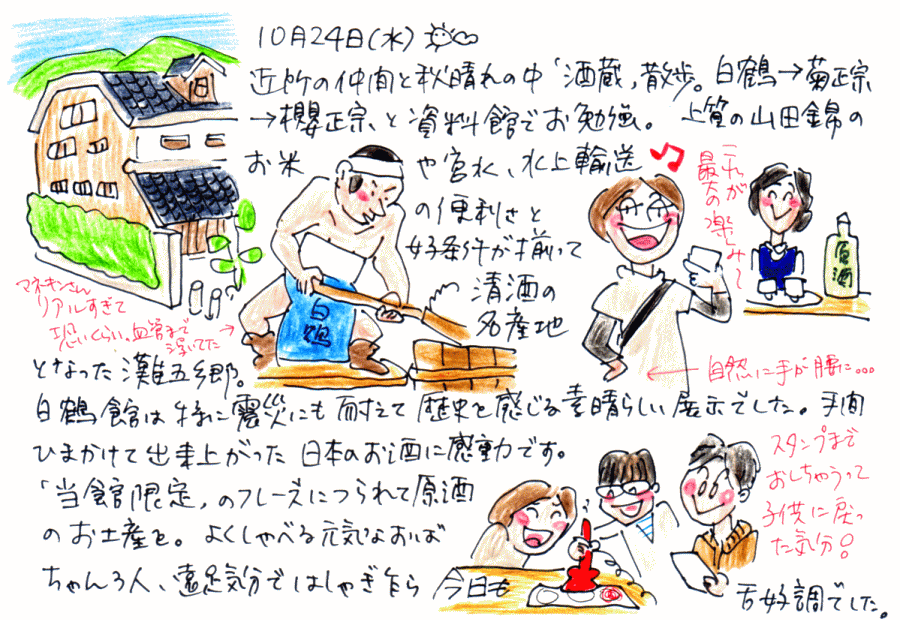 10月24日(水)
近所の仲間と秋晴れの中「酒蔵」散歩。白鶴→菊正宗
→櫻正宗、と資料館でお勉強。 上質の山田錦の
お米や宮水、水上輸送
の便利さと
好条件が揃って
清酒の
名産地
となった灘五郷。
白鶴館は特に震災にも耐えて歴史を感じる素晴らしい展示でした。手間
ひまかけて出来上がった日本のお酒に感動です。
「当館限定」のフレーズにつられて原酒
のお土産を。よくしゃべる元気なおば
ちゃん3人、遠足気分ではしゃぎ乍ら今日も
舌好調でした。
これが
最大の楽しみ〜
原酒
白鶴
マネキンさん
リアルすぎて
恐いくらい、血管まで
浮いてた→
←自然に手が腰に…
スタンプまで
おしちゃうって
子供に戻っ
た気分!